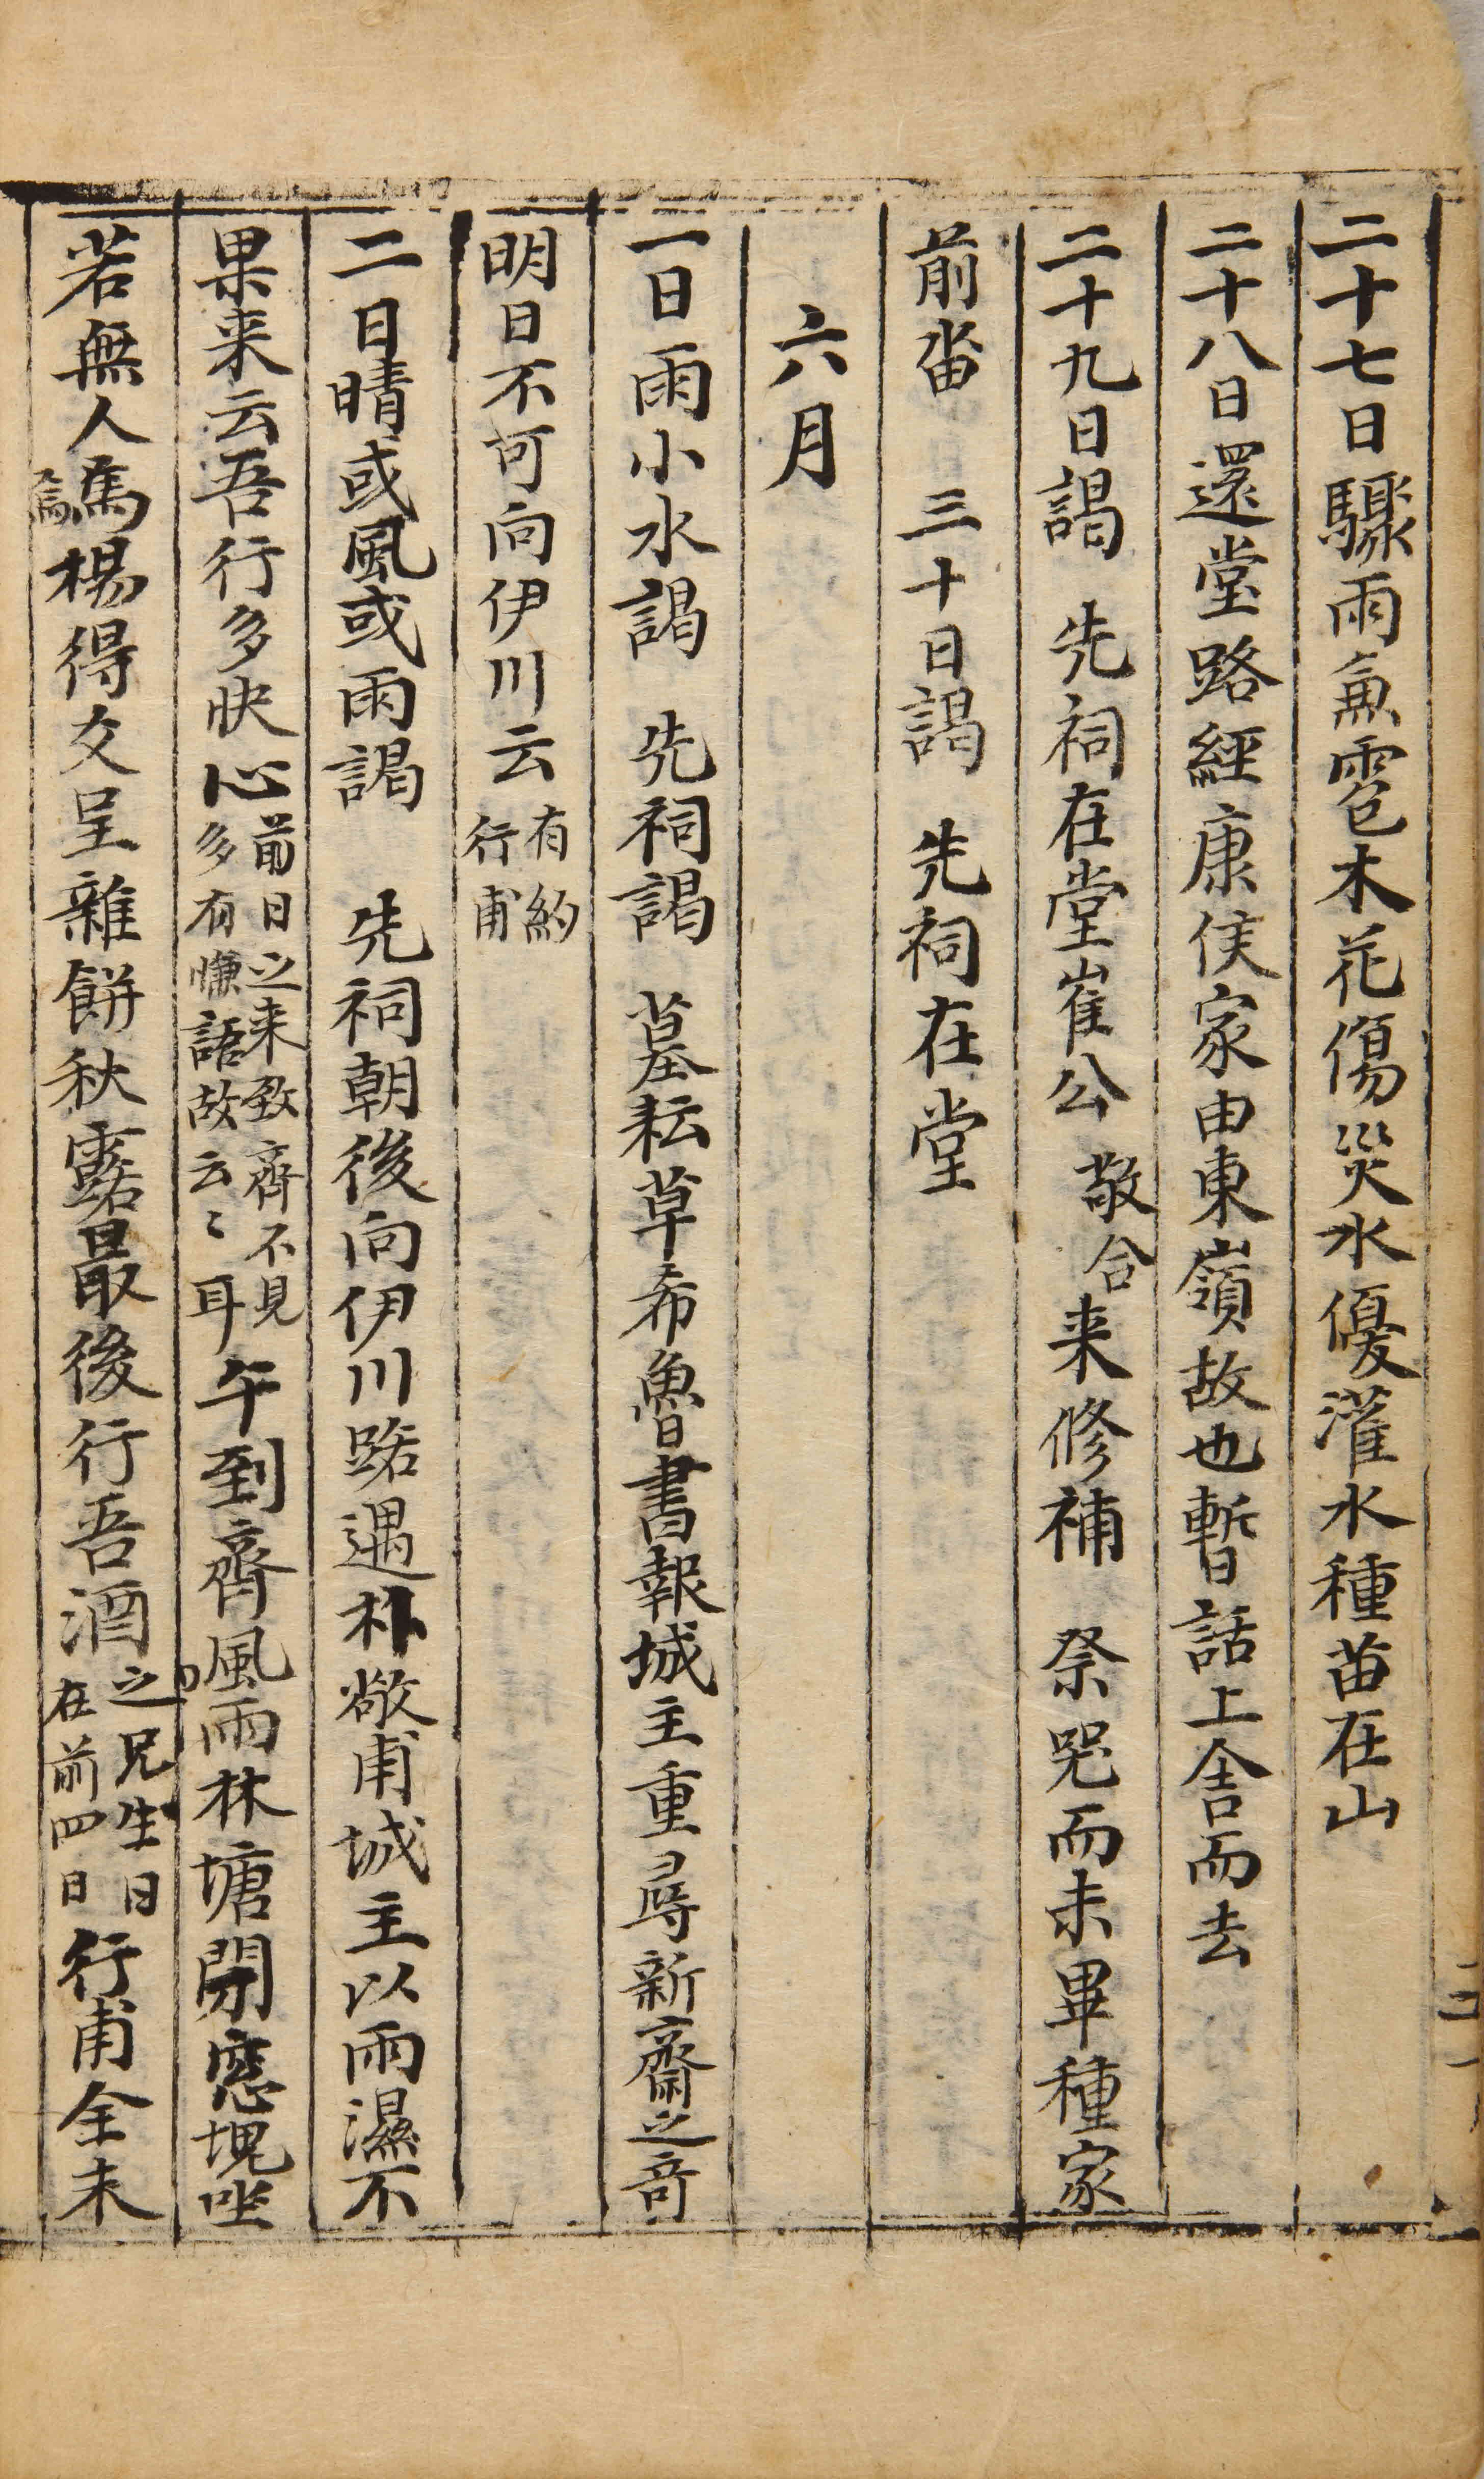 二十七日驟雨魚雹木花傷災水優灌水種苗在山
二十八日還堂路經康侯家由東嶺故也暫話上舍而去
二十九日謁 先祠在堂崔公敬合来修補 祭哭而未畢種家
前畓 三十日謁 先祠在堂
六月
一日雨小水謁 先祠謁 墓耘草希魯書報城主重尋新齋之奇
明日不可向伊川云有約行甫
二日晴或風或雨謁 先祠朝後向伊川路遇朴敬甫城主以雨濕不
果来云吾行多快心前日之来致齊不見多有慊語故云〻耳午到齊風雨林塘開窓塊坐
若無人焉楊得交呈雜餅秋露最後行吾酒之兄生日在前四日行甫全未
三十一